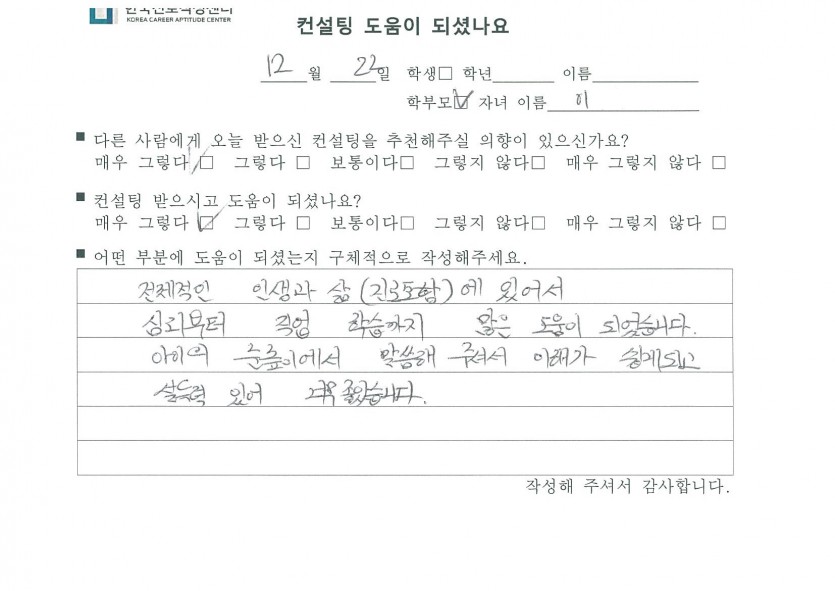 한국진로적성센터
KOREA CAREER APTITUDE CENTER
컨설팅 도움이 되셨나요
12월 22일 학생□ 학년 이름
학부모☑ 자녀 이름 이
■ 다른 사람에게 오늘 받으신 컨설팅을 추천해주실 의향이 있으신가요?
매우 그렇다 ☑ 그렇다 □ 보통이다□ 그렇지 않다□ 매우 그렇지 않다 □
■ 컨설팅 받으시고 도움이 되셨나요?
매우 그렇다 ☑ 그렇다 □ 보통이다□ 그렇지 않다□ 매우 그렇지 않다 □
■ 어떤 부분에 도움이 되셨는지 구체적으로 작성해주세요.
전체적인 인생과 삶(진로포함)에 있어서
심리부터 직업 학습까지 많은 도움이 되었습니다.
아이의 눈높이에서 말씀해 주셔서 이해가 쉽게되고
설득력 있어 너무 좋았습니다.
작성해 주셔서 감사합니다.